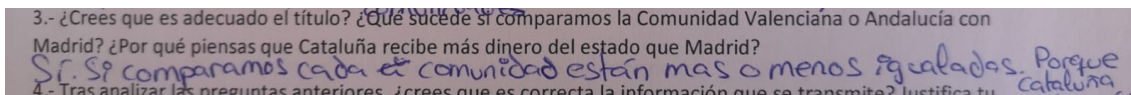 3.- ¿Crees que es adecuado el título? ¿Qué sucede si comparamos la Comunidad Valenciana o Andalucía con
Madrid? ¿Por qué piensas que Cataluña recibe más dinero del estado que Madrid?
Sí. Si comparamos cada comunidad están mas o menos igualadas. Porque
cataluña
4.- Tras analizar las preguntas anteriores, ¿crees que es correcta la información que se transmite? Justifica tu